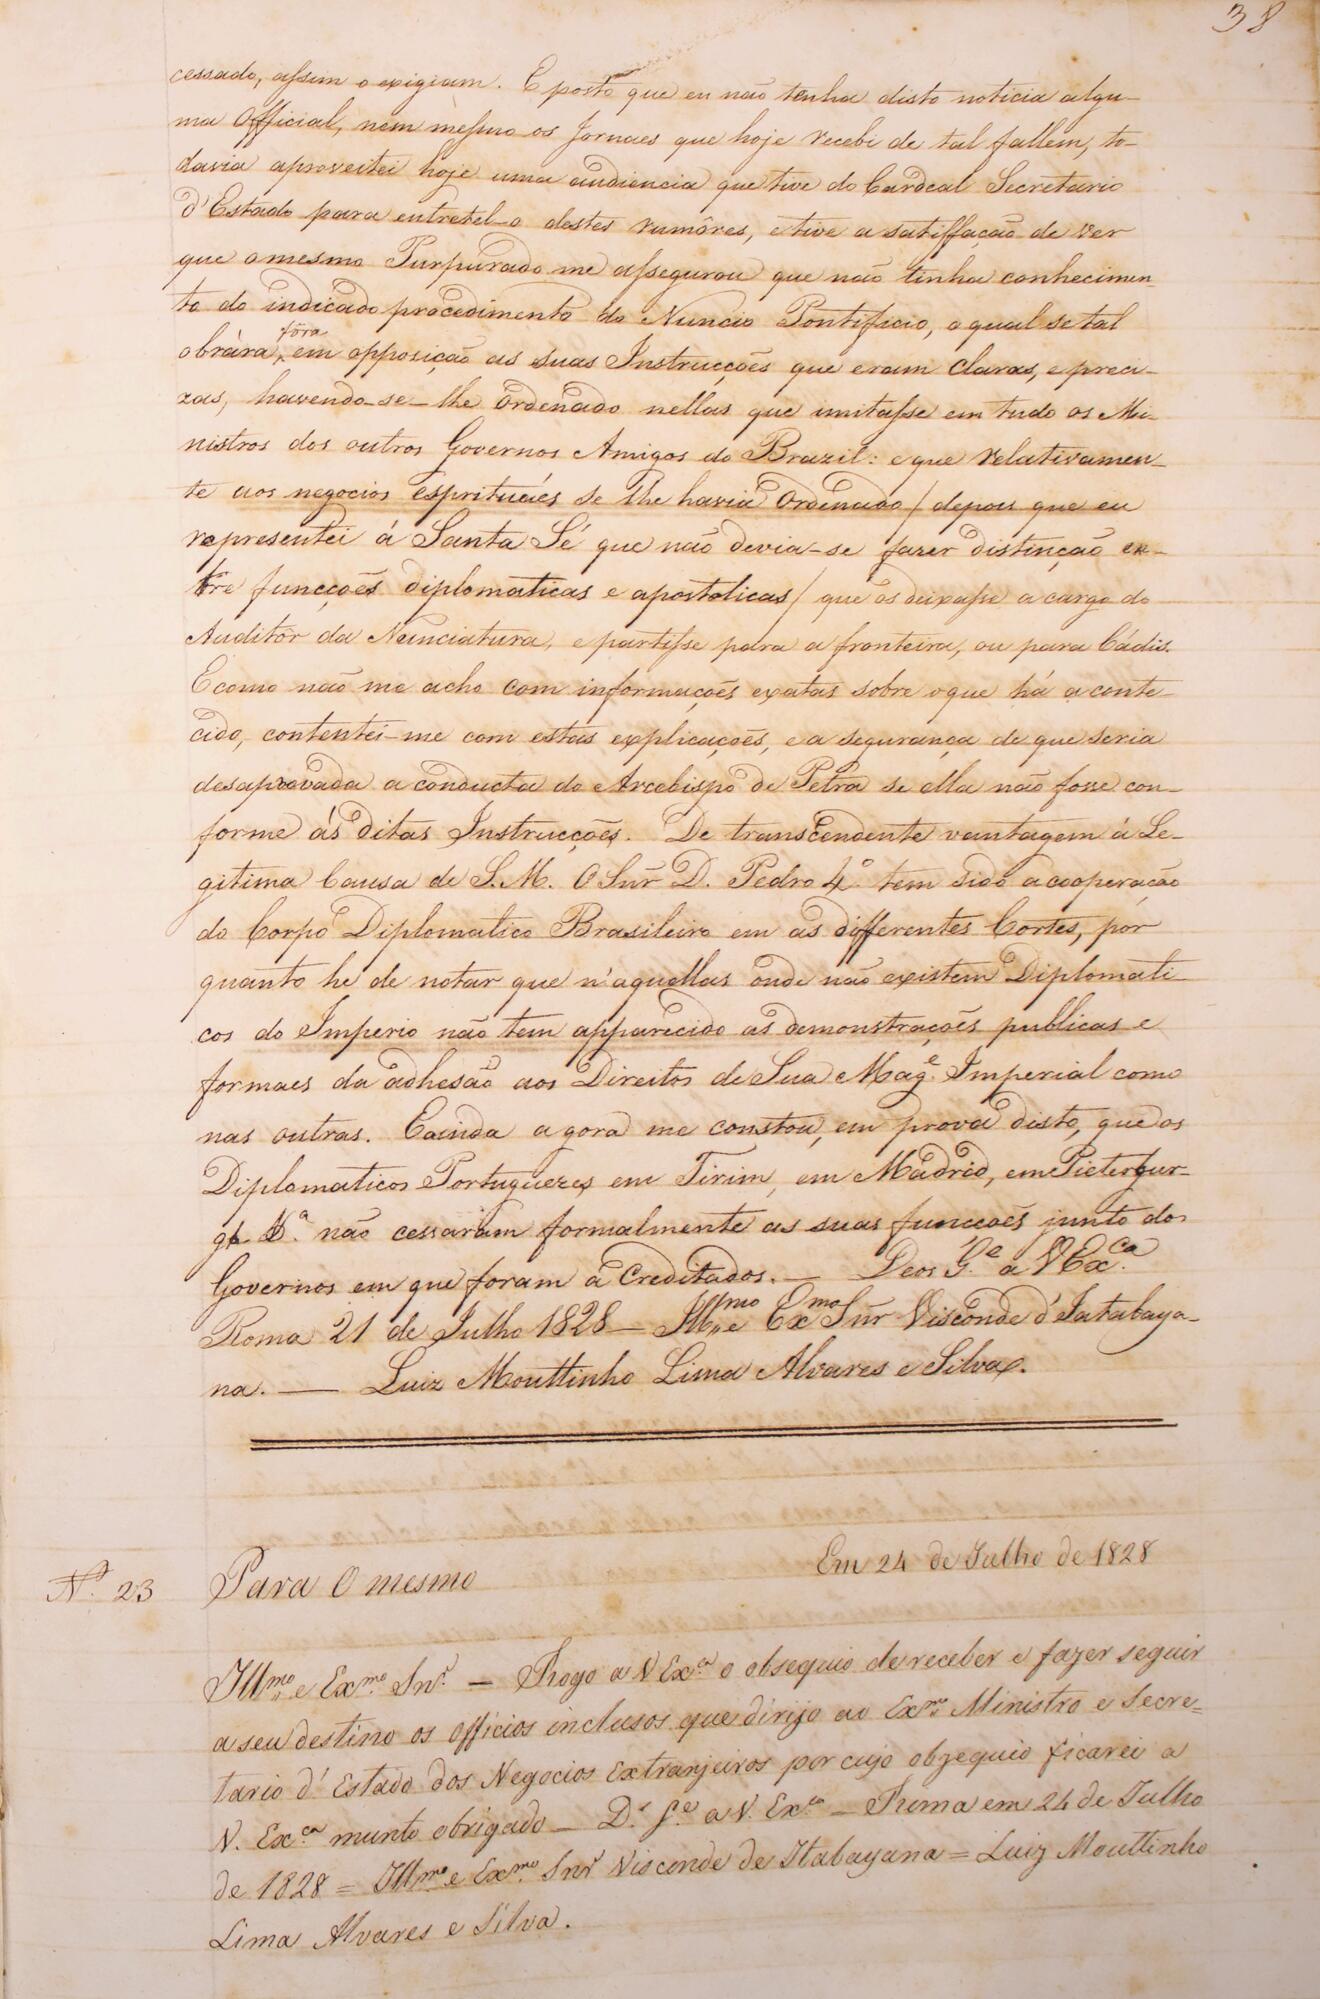 38
cessado, assim o exigiam. E posto que eu não tenha disto noticia algu-
ma Official, nem mesmo os Jornaes que hoje recebi de tal fallem, to-
davia aproveitei hoje uma audiencia que tive do Cardeal Secretario
d'Estado para entretel-o destes rumôres, e tive a satisfação de ver
que o mesmo Purpurado me assegurou que não tinha conhecimen
to do indicado procedimento do Nuncio Pontificio, o qual se tal
obrára, fôra em opposição as suas Instrucções que eram claras, e preci-
zas, havendo-se-lhe Ordenado nellas que imitasse em tudo os Mi-
nistros dos outros Governos Amigos do Brazil: e que relativamen-
te aos negocios espirituáes se lhe havia Ordenado / depois que eu
representei á Santa Sé que não devia-se fazer distincção en-
tre funcções diplomaticas e apostolicas / que os deixasse a cargo do
Auditôr da Nunciatura, e partisse para a fronteira, ou para Cádis.
E como não me acho com informações exatas sobre o que há aconte-
cido, contentei-me com estas explicações, e a segurança de que seria
desaprovada a conducta do Arcebispo de Petra se ella não fosse con-
forme ás ditas Instrucções. De transcendente vantagem á Le-
gitima Causa de S. M. O Snr̃ D. Pedro 4º tem sido a cooperação
do Corpo Diplomatico Brasileiro em as differentes Cortes, por
quanto he de notar que n'aquellas onde não existem Diplomati
cos do Imperio não tem apparecido as demonstrações publicas e
formaes da adhesão aos Direitos de Sua Mag.e Imperial como
nas outras. E ainda agora me constou, em prova disto, que os
Diplomaticos Portuguezes em Tirim, em Madrid, em Pietersbur-
não cessaram formalmente as suas funccões junto dos
Governos em que foram acreditados. — Deos G.e a V Ex.ca
Roma 21 de Julho 1828 — Ill.mo e Ex.mo Snr̃ Visconde d'Itabaya-
na. — Luiz Mouttinho Lima Alvares e Silva.
Nº. 23 Para O mesmo Em 24 de Julho de 1828
Ill.mo e Ex.mo Snr. — Rogo a V Ex.ca o obsequio de receber e fazer seguir
a seu destino os officios inclusos que dirijo ao Ex.mo Ministro e Secre=
tario d'Estado dos Negocios Extranjeiros por cujo obzequio ficarei a
V. Ex.ca munto obrigado — D.s G.e a V. Ex.ca — Roma em 24 de Julho
de 1828 = Ill.mo e Ex.mo Snr Visconde de Itabayana = Luiz Mouttinho
Lima Alvares e Silva.